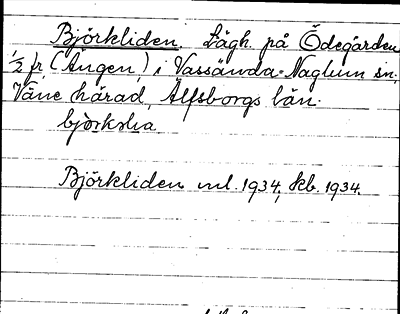 Björkliden. Lägh. på Ödegården
1/2 fr. (Ängen) i Vassända-Naglum sn,
Väne härad, Älfsborgs län.
björkslia
Björkliden ml. 1934, kb. 1934.